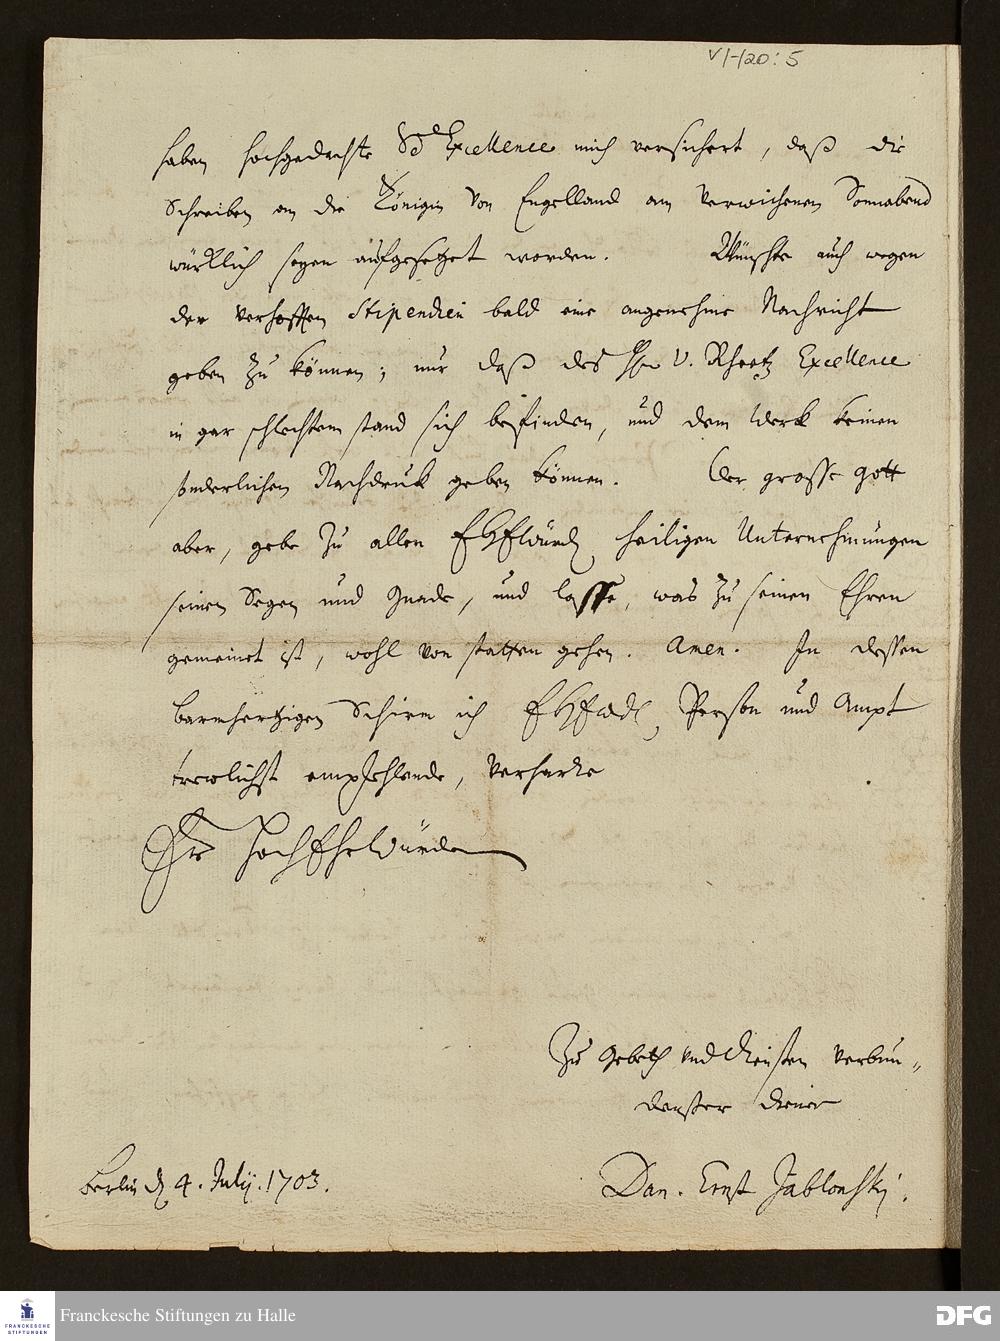 VI-120:5
haben hochgedachte Sr Excellence mich versichert, daß die
Schreiben an die Königin von Engelland am verwichenen Sonnabend
würklich seyen aufgesetzet worden. Wünschte auch wegen
der verhofften Stipendien bald eine angenehme Nachricht
geben zu können; nur daß des Hn v. Rheetz Excellence
in gar schlechtem stand sich befinden, und dem Werk keinen
sonderlichen Nachdruck geben können. Der grosse Gott
aber, gebe zu allen EHEwürd. heiligen Unternehmungen
seinen Segen und Gnade, und lasse, was zu seinen Ehren
gemeinet ist, wohl von statten gehen. Amen. In dessen
barmhertzigen Schirm ich EHEwd. Person und Ampt
trewlichst empfehlende, verharre
Ew HochEhrwürden
Zu Gebeth und Diensten verbun„
denster Diener
Berlin d. 4. July. 1703.
Dan. Ernst Jablonski.
FRANCKESCHE
STIFTUNGEN
Franckesche Stiftungen zu Halle
DFG